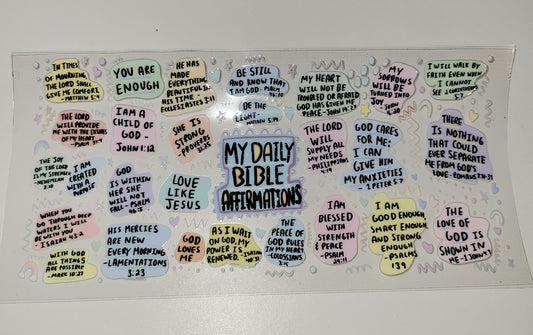 IN TIMES
OF MOURNING,
THE LORD SHALL
GIVE ME COMFORT.
-MATTHEW 5:4
YOU ARE
ENOUGH
HE HAS
MADE
EVERYTHING
BEAUTIFUL IN
HIS TIME -
ECCLESIASTES 3:11
BE STILL
AND KNOW THAT
I AM GOD - PSALM
46:10
MY HEART
WILL NOT BE
TROUBLED OR AFRAID
GOD HAS GIVEN ME
PEACE - JOHN 14:27
MY
SORROWS
WILL BE
TURNED INTO
JOY - JOHN
16:20
I WILL WALK BY
FAITH EVEN WHEN
I CANNOT
SEE - 2 CORINTHIANS
5:7
THE LORD
WILL
PROVIDE
ME WITH THE DESIRES
OF MY HEART
- PSALM 37:4
I AM A
CHILD OF
GOD -
JOHN 1:12
SHE IS
STRONG
- PROVERBS
31:25
BE THE
LIGHT -
MATTHEW 5:14
MY DAILY
BIBLE
AFFIRMATIONS
THE LORD
WILL
SUPPLY ALL
MY NEEDS
- PHILIPPIANS
4:19
GOD CARES
FOR ME;
I CAN
GIVE HIM
MY ANXIETIES
- 1 PETER 5:7
THERE
IS NOTHING
THAT COULD
EVER SEPARATE
ME FROM GOD'S
LOVE - ROMANS 8:38-39
THE JOY
OF THE LORD
IS MY STRENGTH
- NEHEMIAH
8:10
I AM
CREATED
WITH A
PURPOSE
GOD
IS WITHIN
HER SHE
WILL NOT
FALL - PSALM
46:5
LOVE
LIKE
JESUS
WHEN YOU
GO THROUGH DEEP
WATERS I WILL
BE WITH YOU
- ISAIAH 43:2
HIS MERCIES
ARE NEW
EVERY MORNING
- LAMENTATIONS
3:23
GOD
LOVES
ME
AS I WAIT
ON GOD, MY
POWER IS
RENEWED. - ISAIAH
40:31
THE
PEACE OF
GOD RULES
IN MY HEART
- COLOSSIANS
3:15
I AM
BLESSED
WITH
STRENGTH
& PEACE
- PSALM
29:11
I AM
GOOD ENOUGH,
SMART ENOUGH
AND STRONG
ENOUGH
- PSALMS
139
THE
LOVE OF
GOD IS
SHOWN IN
ME - 1 JOHN
WITH GOD
ALL THINGS
ARE POSSIBLE
- MARK 10:27